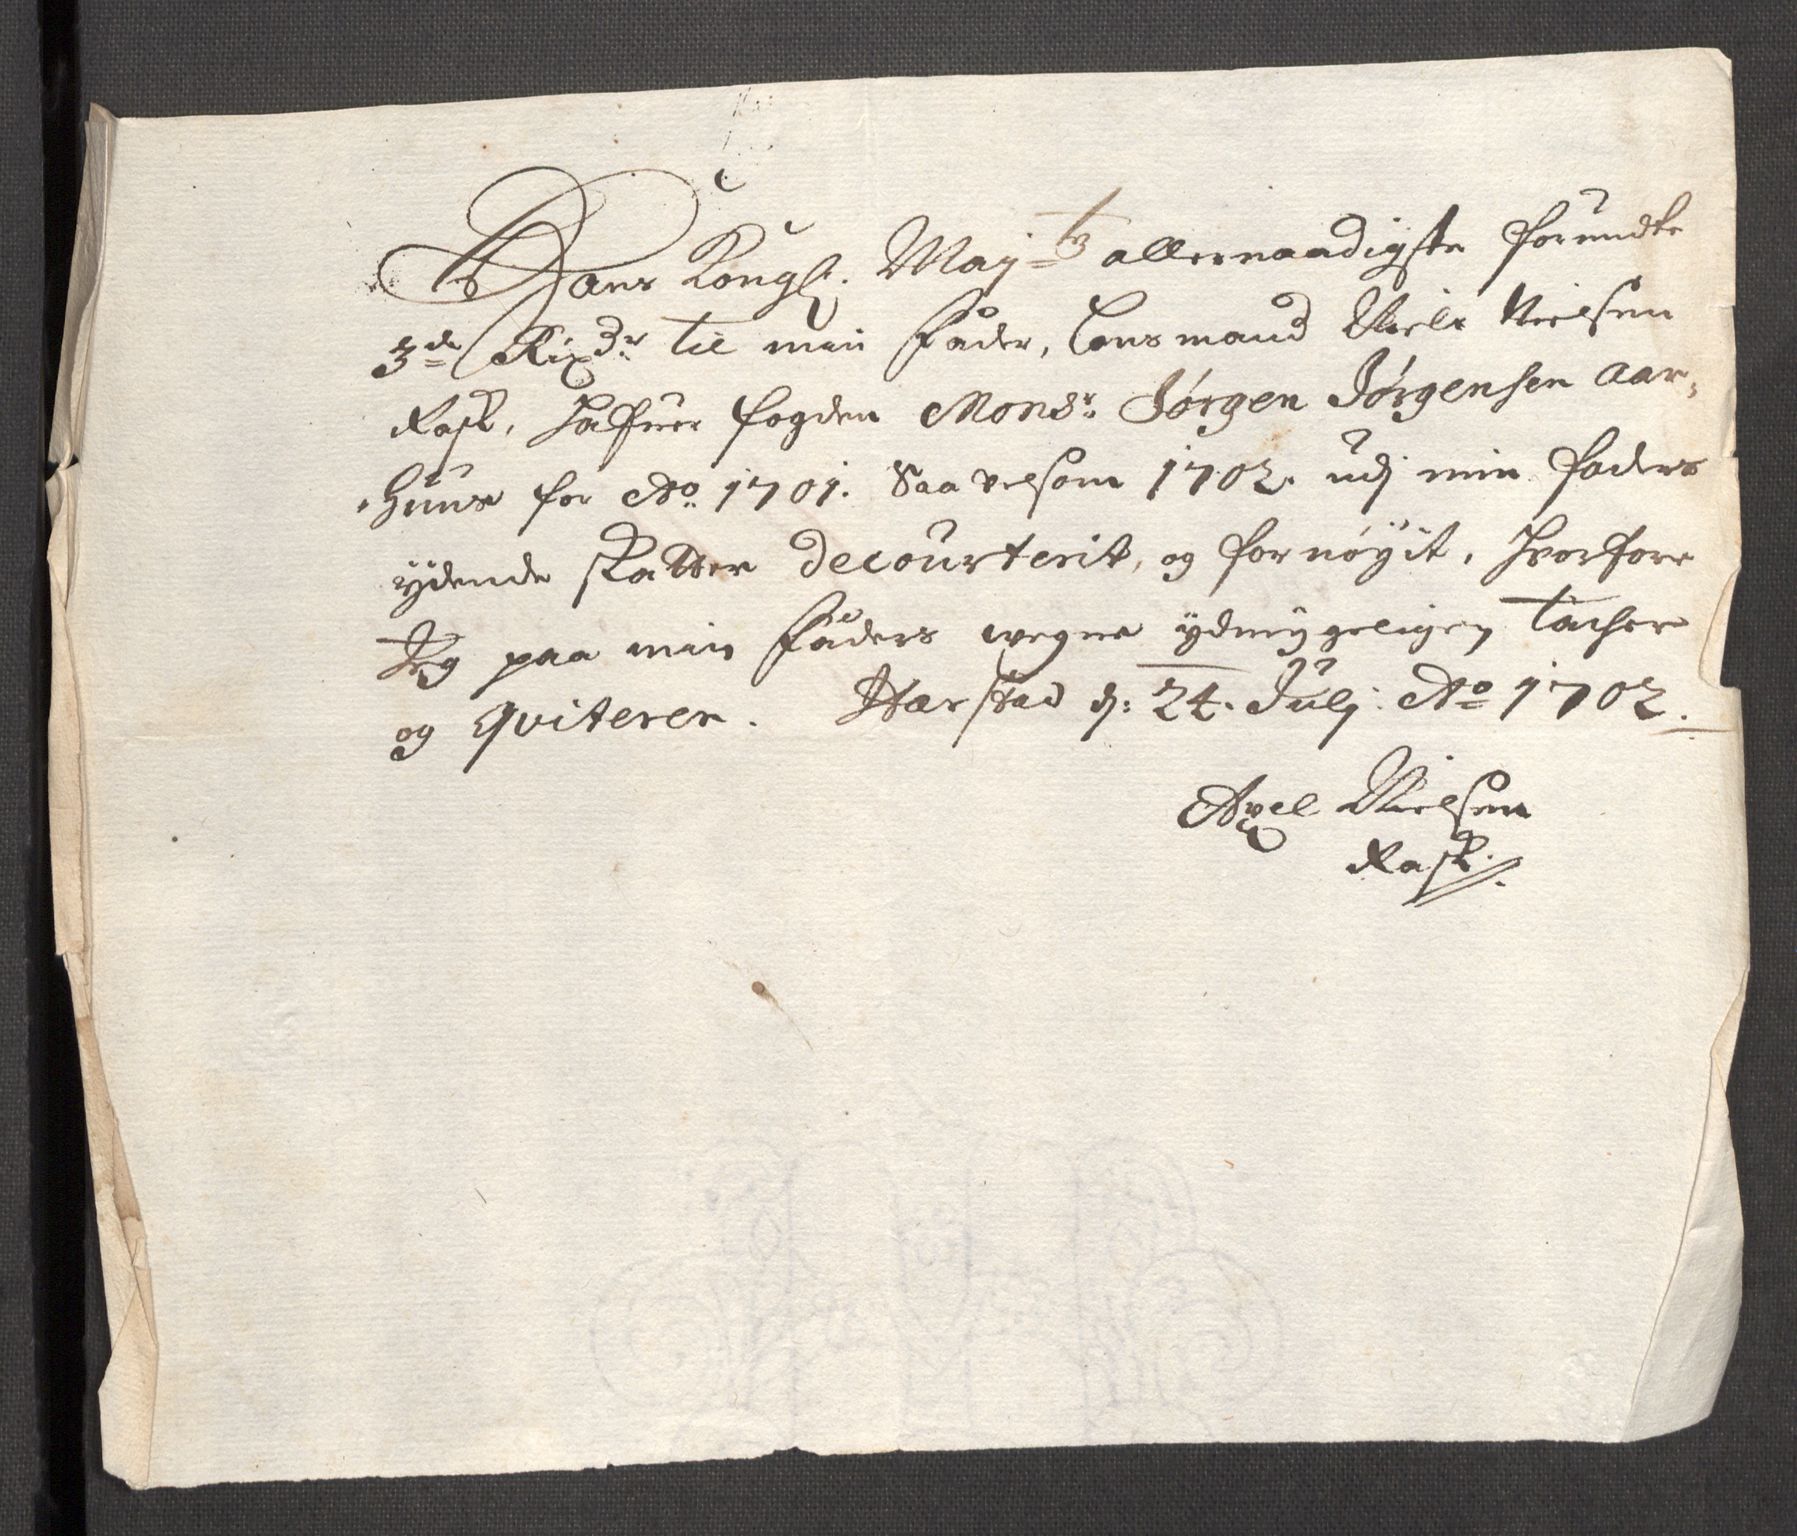 Hans Kongl. May-tz allernaadigste forundte
3de Rixdr til min Fader, Lensmand Niels Nielsen
Rask, hafuer fogden Monsr. Jørgen Jørgensen Aar-
huus for Ao 1701. Saavelsom 1702. udj min faders
ydende skatter decourterit, og fornøyit, hvorfore
Jeg paa min Faders wegne ydmygeligen tacher
og qviterer. Harstad d: 24. Julj: Ao 1702.
Axel Nielsen
Rask.